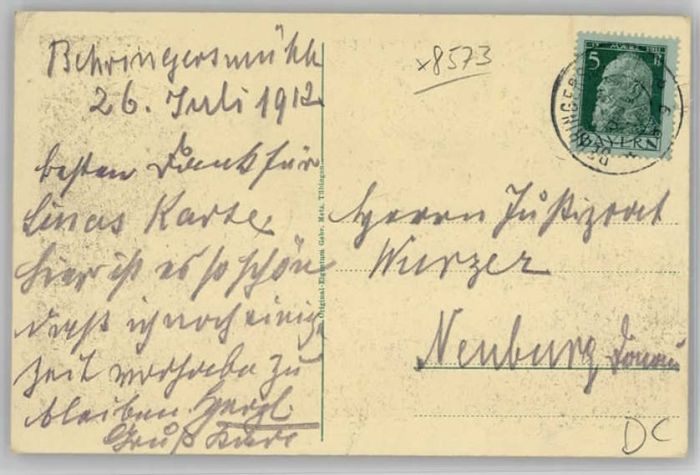 Behringersmühle
26. Juli 1912
besten Dank für
Linas Karte
hier ist es so schön
daß ich noch einige
Zeit vorhabe zu
bleiben. Hergl
Gruß Karl
x8573
5
BAYERN
Herrn Justizrat
Wurzer
Neuburg Donau
Original-Eigentum Gebr. Metz, Tübingen
DC